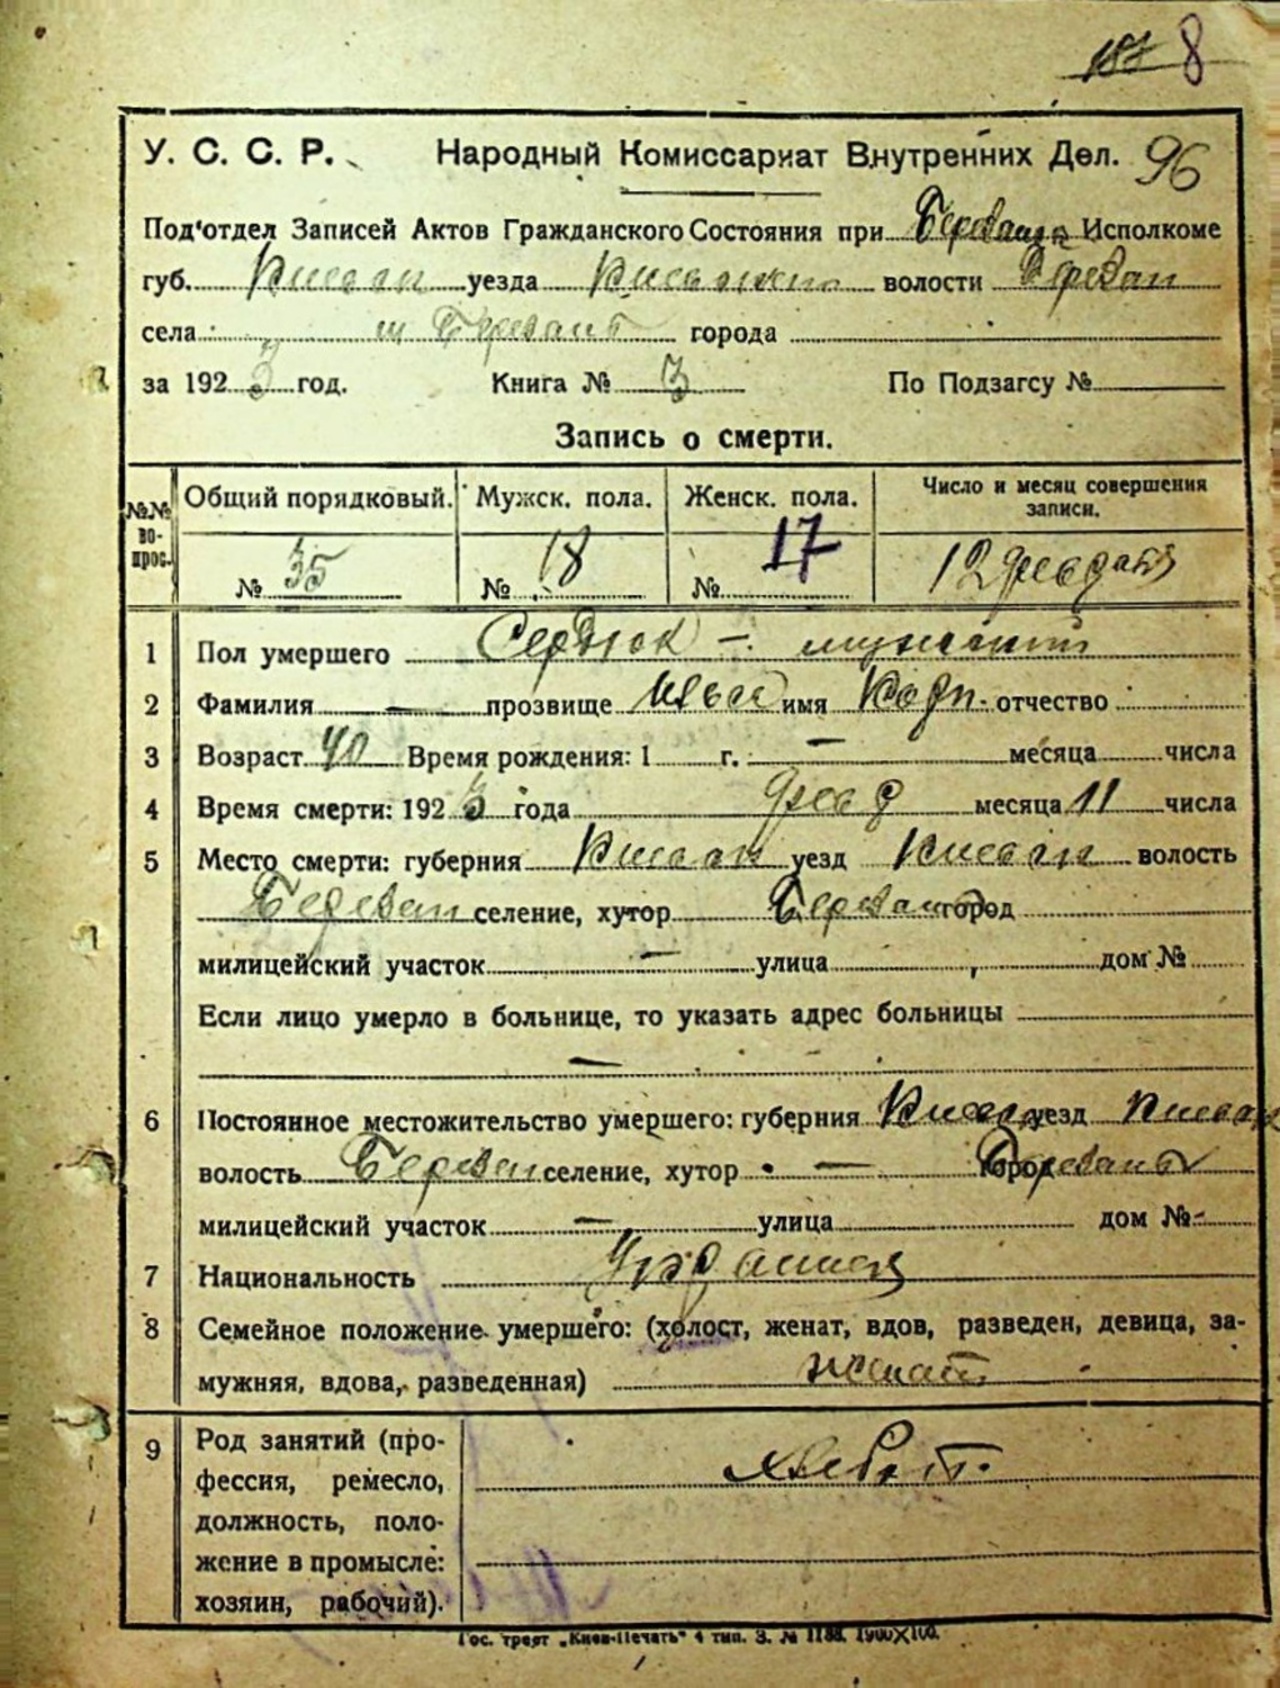 187 8
У. С. С. Р. Народный Комиссариат Внутренних Дел. 96
Под'отдел Записей Актов Гражданского Состояния при Исполкоме
губ. Киевск уезда Киевский волости Березан
села м Березань города
за 1923 год. Книга № 3 По Подзагсу №
Запись о смерти.
№№ вопрос. Общий порядковый. Мужск. пола. Женск. пола. Число и месяц совершения записи.
№ 35 № 18 № 17 12 февраля
1 Пол умершего Сердюк - мужской
2 Фамилия — прозвище Илья имя отчество
3 Возраст 40 Время рождения: 1 г. — месяца числа
4 Время смерти: 1923 года февр месяца 11 числа
5 Место смерти: губерния Киевск уезд Киевск волость
Березан селение, хутор Березань город
милицейский участок — улица дом №
Если лицо умерло в больнице, то указать адрес больницы
—
6 Постоянное местожительство умершего: губерния Киевск уезд Киевск
волость Березан селение, хутор — город Березань
милицейский участок — улица дом № -
7 Национальность
8 Семейное положение умершего: (холост, женат, вдов, разведен, девица, за-
мужняя, вдова, разведенная) женат
9 Род занятий (про-
фессия, ремесло, хлебоп.
должность, поло-
жение в промысле:
хозяин, рабочий).
Гос. трест „Киев-Печать" 4 тип. З. № 1188. 1900X100.